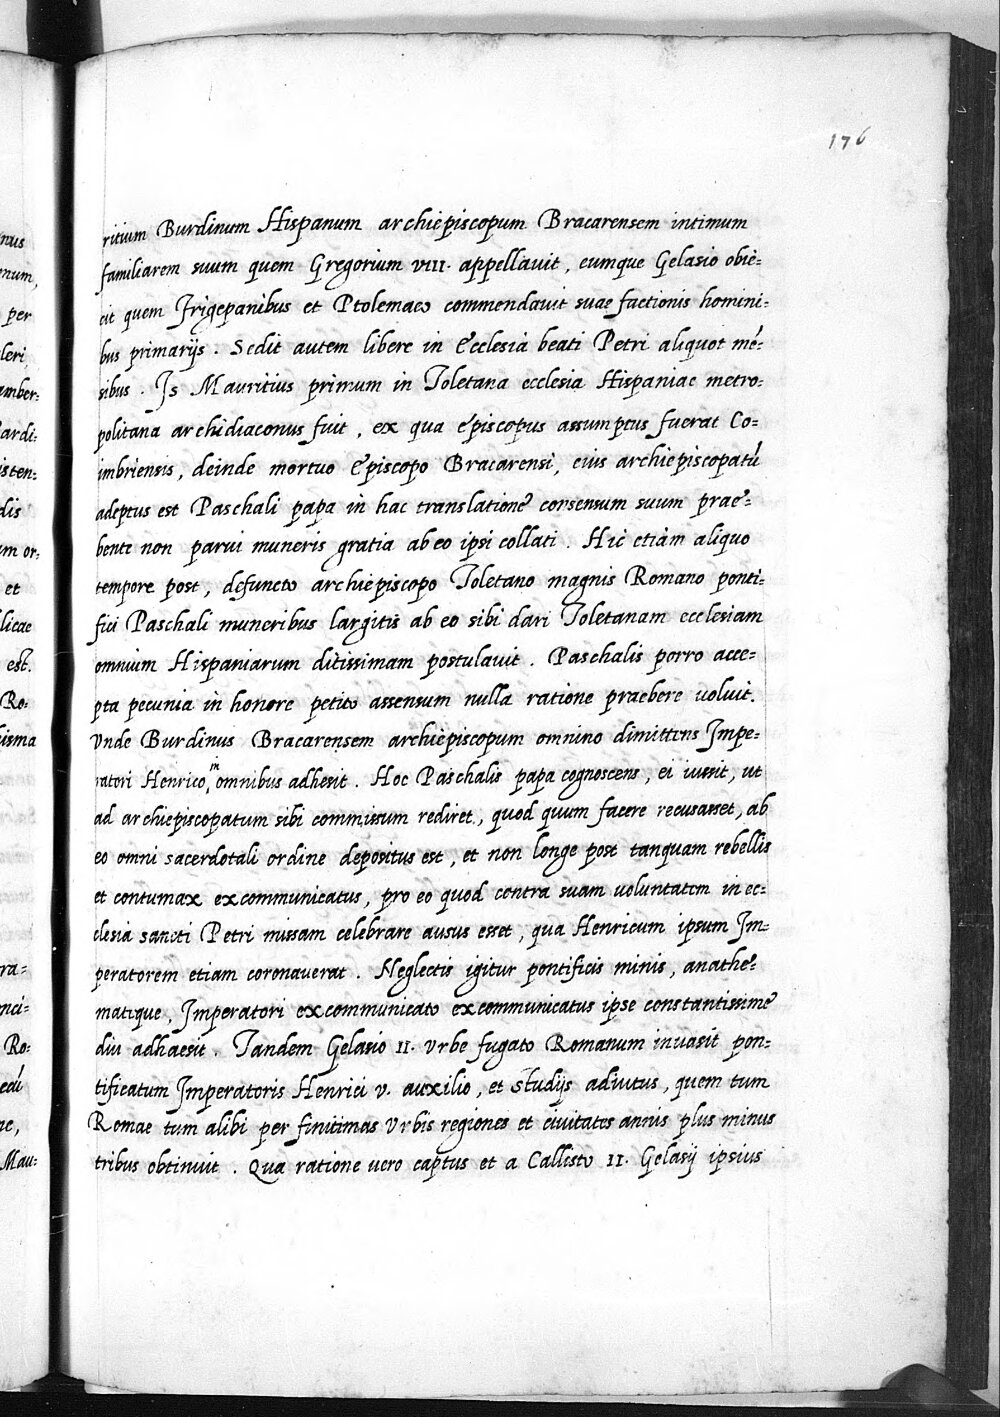 176
ritium Burdinum Hispanum archiepiscopum Bracarensem intimum
familiarem suum quem Gregorium VIII. appellavit, eumque Gelasio obie=
cit quem Frigepanibus et Ptolemaeo commendavit suae factionis homini=
bus primarijs. Sedit autem libere in Ecclesia beati Petri aliquot mé=
sibus. Is Mauritius primum in Toletana ecclesia Hispaniae metro=
politana archidiaconus fuit, ex qua episcopus assumptus fuerat Co=
imbriensis, deinde mortuo Episcopo Bracarensi, eius archiepiscopatú
adeptus est Paschali papa in hac translatione consensum suum prae=
bente non parui muneris gratia ab eo ipsi collati. Hic etiam aliquo
tempore post, defuncto archiepiscopo Toletano magnis Romano ponti=
fici Paschali muneribus largitis ab eo sibi dari Toletanam ecclesiam
omnium Hispaniarum ditissimam postulavit. Paschalis porro acce=
pta pecunia in honore petito assensum nulla ratione praebere uoluit.
Vnde Burdinus Bracarensem archiepiscopum omnino dimittens Impe=
ratori Henrico, in omnibus adhesit. Hoc Paschalis papa cognoscens, ei iussit, ut
ad archiepiscopatum sibi commissum rediret, quod quum facere recusasset, ab
eo omni sacerdotali ordine depositus est, et non longe post tanquam rebellis
et contumax excommunicatus, pro eo quod contra suam uoluntatem in ec=
clesia sancti Petri missam celebrare ausus esset, qua Henricum ipsum Im=
peratorem etiam coronauerat. Neglectis igitur pontificis minis, anathe=
matique, Imperatori excommunicato excommunicatus ipse constantissime
diu adhaesit. Tandem Gelasio II. Vrbe fugato Romanum inuasit pon=
tificatum Imperatoris Henrici V. auxilio, et studijs adiutus, quem tum
Romae tum alibi per finitimas Vrbis regiones et ciuitates annis plus minus
tribus obtinuit. Qua ratione uero captus et a Callisto II. Gelasij ipsius